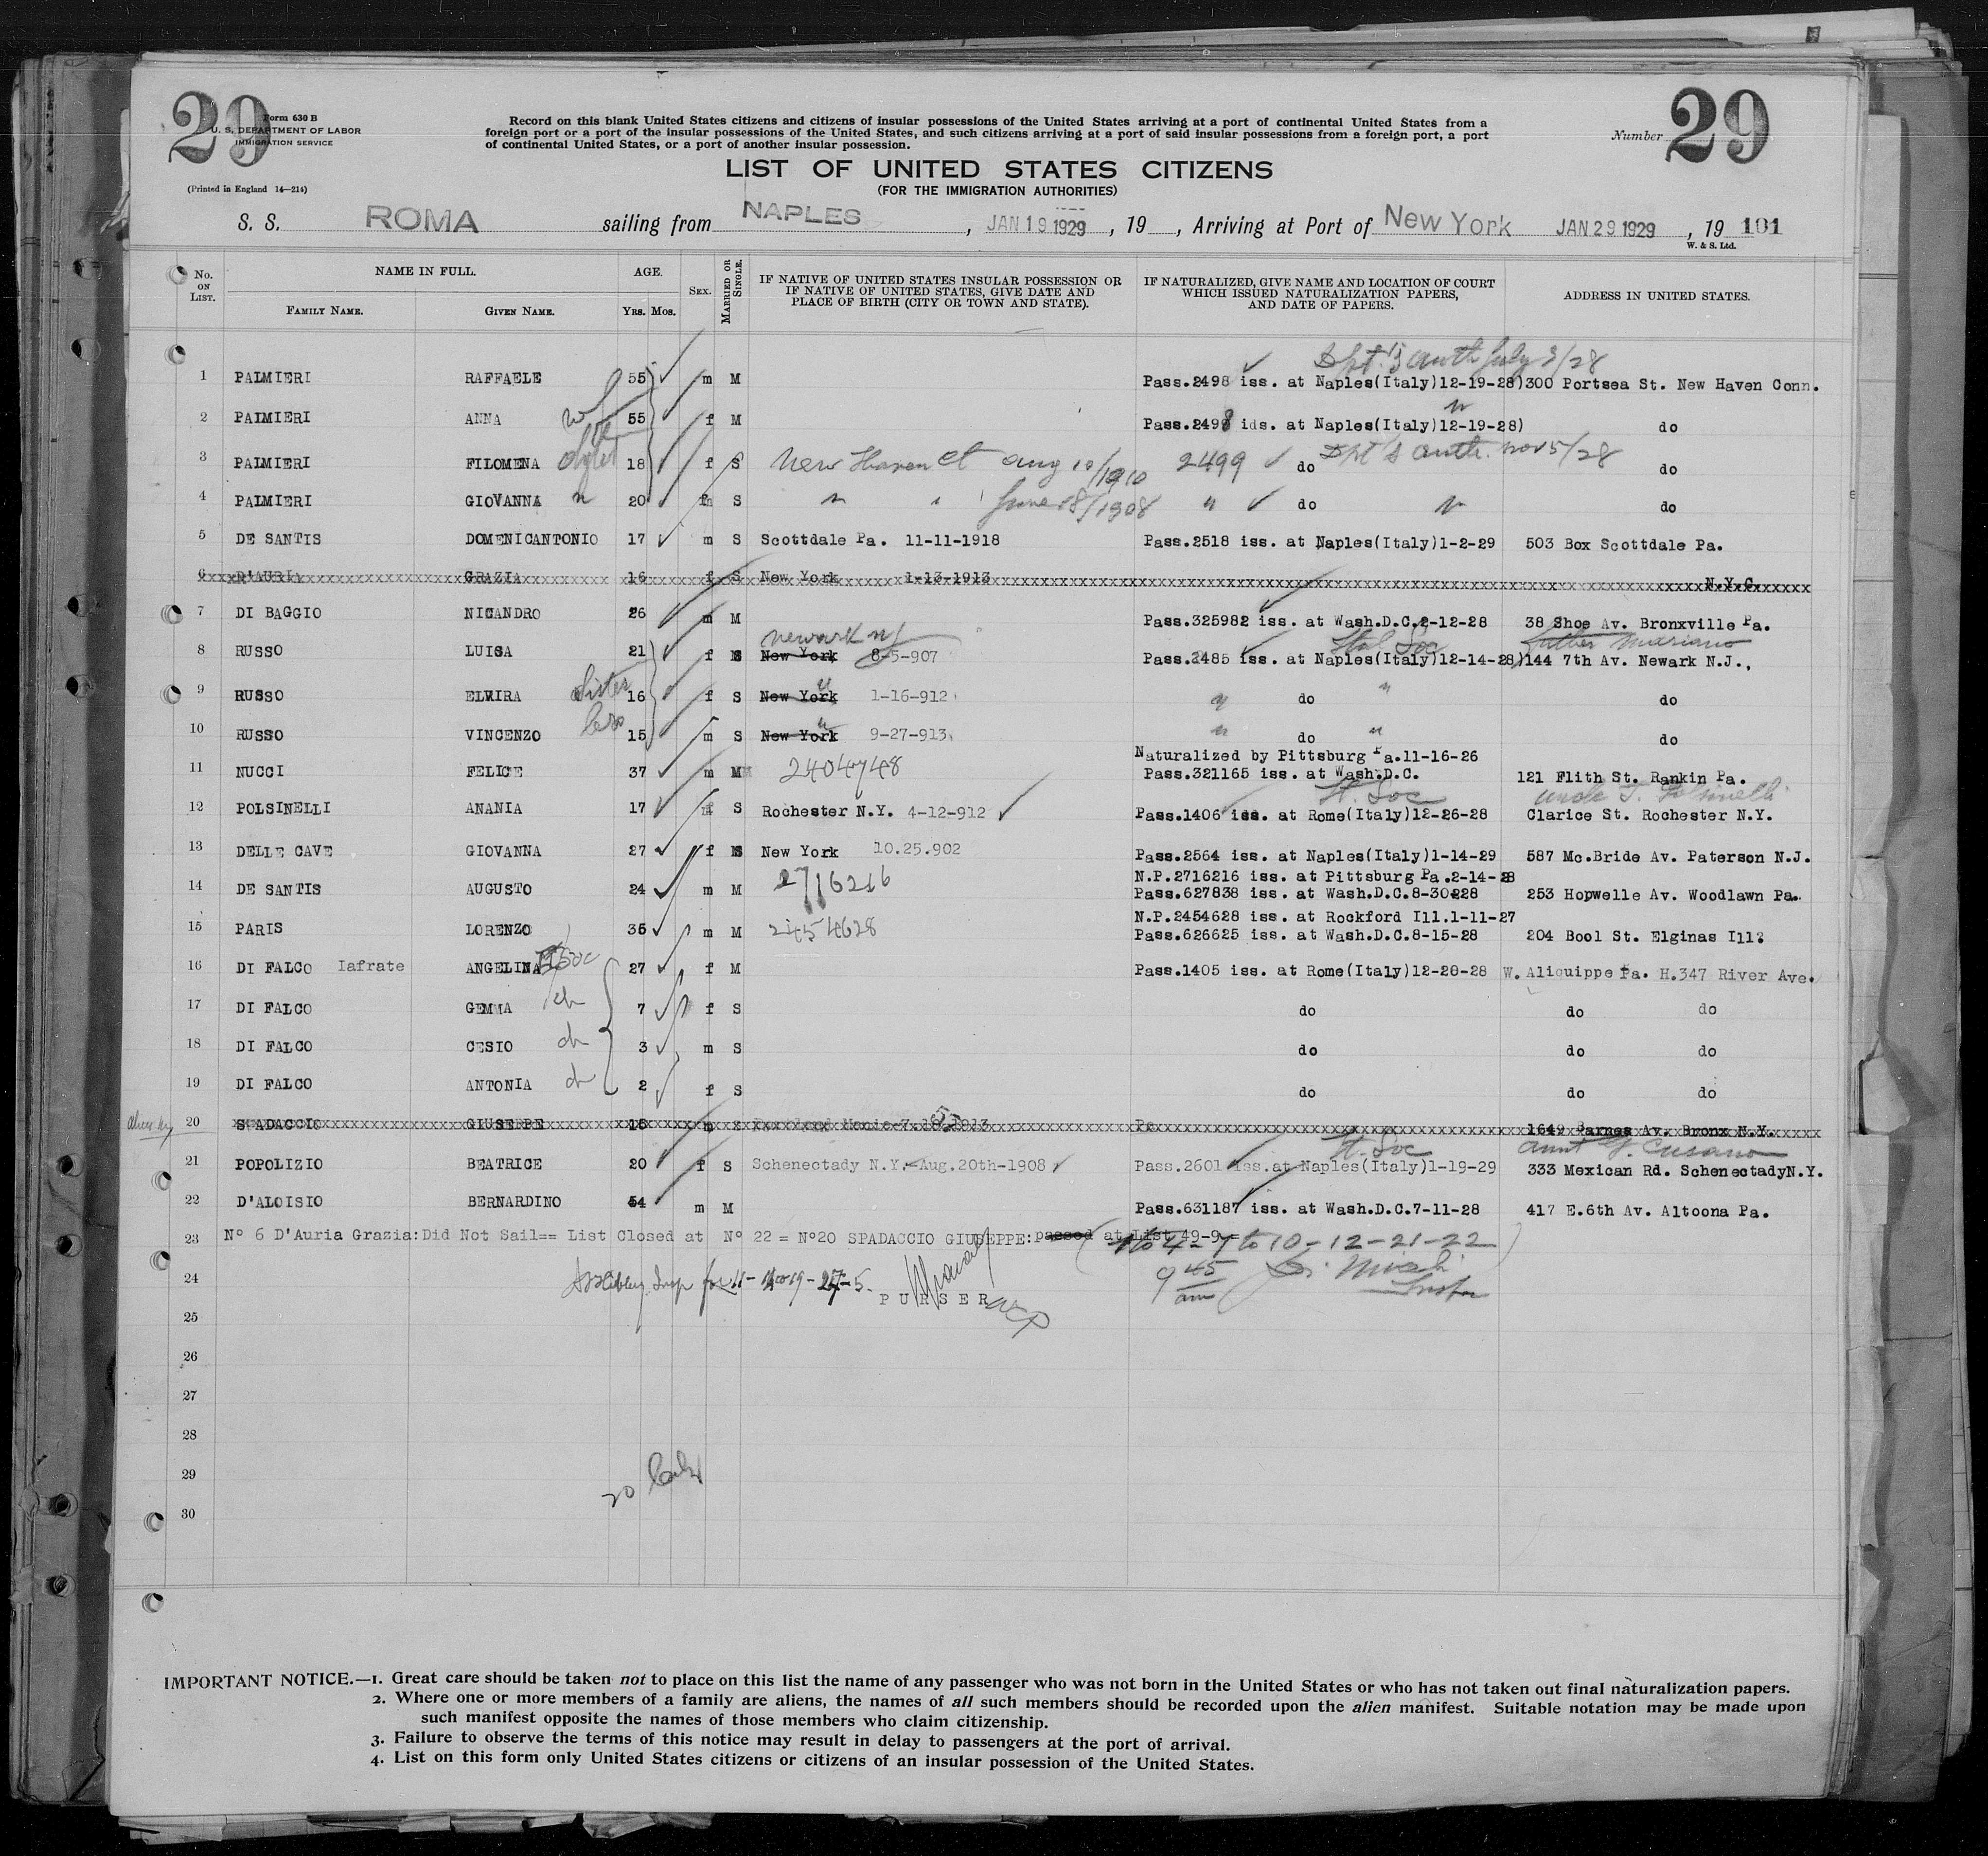 29
Form 630 B
U. S. DEPARTMENT OF LABOR
IMMIGRATION SERVICE
(Printed in England 14—214)
Record on this blank United States citizens and citizens of insular possessions of the United States arriving at a port of continental United States from a
foreign port or a port of the insular possessions of the United States, and such citizens arriving at a port of said insular possessions from a foreign port, a port
of continental United States, or a port of another insular possession.
Number 29
LIST OF UNITED STATES CITIZENS
(FOR THE IMMIGRATION AUTHORITIES)
S. S. ROMA sailing from NAPLES, JAN 19 1929, 19 , Arriving at Port of New York JAN 29 1929, 19 101
W. & S. Ltd.
No. ON LIST. NAME IN FULL. FAMILY NAME. GIVEN NAME. AGE. YRS. MOS. SEX. MARRIED OR SINGLE. IF NATIVE OF UNITED STATES INSULAR POSSESSION OR IF NATIVE OF UNITED STATES, GIVE DATE AND PLACE OF BIRTH (CITY OR TOWN AND STATE). IF NATURALIZED, GIVE NAME AND LOCATION OF COURT WHICH ISSUED NATURALIZATION PAPERS, AND DATE OF PAPERS. ADDRESS IN UNITED STATES.
Dpt's auth July 3/28
1 PALMIERI RAFFAELE 55 m M Pass.2498 iss. at Naples(Italy)12-19-28)300 Portsea St. New Haven Conn.
2 PALMIERI ANNA wf 55 f M Pass.2498 ids. at Naples(Italy)12-19-28) " do
3 PALMIERI FILOMENA 18 f S New Haven Ct Aug 10/1910 2499 do Dpt's auth. Nov 5/28 do
4 PALMIERI GIOVANNA " 20 f S " " June 18/1908 " do " do
5 DE SANTIS DOMENICANTONIO 17 m S Scottdale Pa. 11-11-1918 Pass.2518 iss. at Naples(Italy)1-2-29 503 Box Scottdale Pa.
6 D'AURIA GRAZIA 16 f S New York 1-13-1913 N.Y.C.
7 DI BAGGIO NICANDRO 26 m M Pass.325982 iss. at Wash.D.C.2-12-28 38 Shoe Av. Bronxville Pa.
Newark NJ Ital Soc father Mariano
8 RUSSO LUISA 21 f S New York 8-5-907 Pass.2485 iss. at Naples(Italy)12-14-28)144 7th Av. Newark N.J.,
9 RUSSO ELVIRA sister 16 f S New York " 1-16-912 " do " do
10 RUSSO VINCENZO bro 15 m S New York " 9-27-913 " do " do
Naturalized by Pittsburg Pa.11-16-26
11 NUCCI FELICE 37 m M 2404748 Pass.321165 iss. at Wash.D.C. 121 Flith St. Rankin Pa.
It. Soc uncle T. Polsinelli
12 POLSINELLI ANANIA 17 f S Rochester N.Y. 4-12-912 Pass.1406 iss. at Rome(Italy)12-26-28 Clarice St. Rochester N.Y.
13 DELLE CAVE GIOVANNA 27 f S New York 10.25.902 Pass.2564 iss. at Naples(Italy)1-14-29 587 Mc.Bride Av. Paterson N.J.
N.P.2716216 iss. at Pittsburg Pa.2-14-28
14 DE SANTIS AUGUSTO 24 m M 2716216 Pass.627838 iss. at Wash.D.C.8-30-28 253 Hopwelle Av. Woodlawn Pa.
N.P.2454628 iss. at Rockford Ill.1-11-27
15 PARIS LORENZO 35 m M 2454628 Pass.626625 iss. at Wash.D.C.8-15-28 204 Bool St. Elginas Ill.
16 DI FALCO Iafrate ANGELINA 27 f M Pass.1405 iss. at Rome(Italy)12-20-28 W. Aliquippe Pa. H.347 River Ave.
17 DI FALCO GEMMA ch 7 f S do do do
18 DI FALCO CESIO ch 3 m S do do do
19 DI FALCO ANTONIA ch 2 f S do do do
20 SPADACCIO GIUSEPPE 15 m 1649 Barnes Av. Bronx N.Y.
It. Soc aunt G. Cusano
21 POPOLIZIO BEATRICE 20 f S Schenectady N.Y.-Aug.20th-1908 Pass.2601 iss.at Naples(Italy)1-19-29 333 Mexican Rd. SchenectadyN.Y.
22 D'ALOISIO BERNARDINO 54 m M Pass.631187 iss. at Wash.D.C.7-11-28 417 E.6th Av. Altoona Pa.
23 Nº 6 D'Auria Grazia:Did Not Sail== List Closed at Nº 22 = Nº20 SPADACCIO GIUSEPPE: passed at List 49-9
1 to 4 - 7 to 10 - 12 - 21 - 22
24 9 45 am
PURSER
25
26
27
28
29
30
IMPORTANT NOTICE.—1. Great care should be taken not to place on this list the name of any passenger who was not born in the United States or who has not taken out final naturalization papers.
2. Where one or more members of a family are aliens, the names of all such members should be recorded upon the alien manifest. Suitable notation may be made upon
such manifest opposite the names of those members who claim citizenship.
3. Failure to observe the terms of this notice may result in delay to passengers at the port of arrival.
4. List on this form only United States citizens or citizens of an insular possession of the United States.